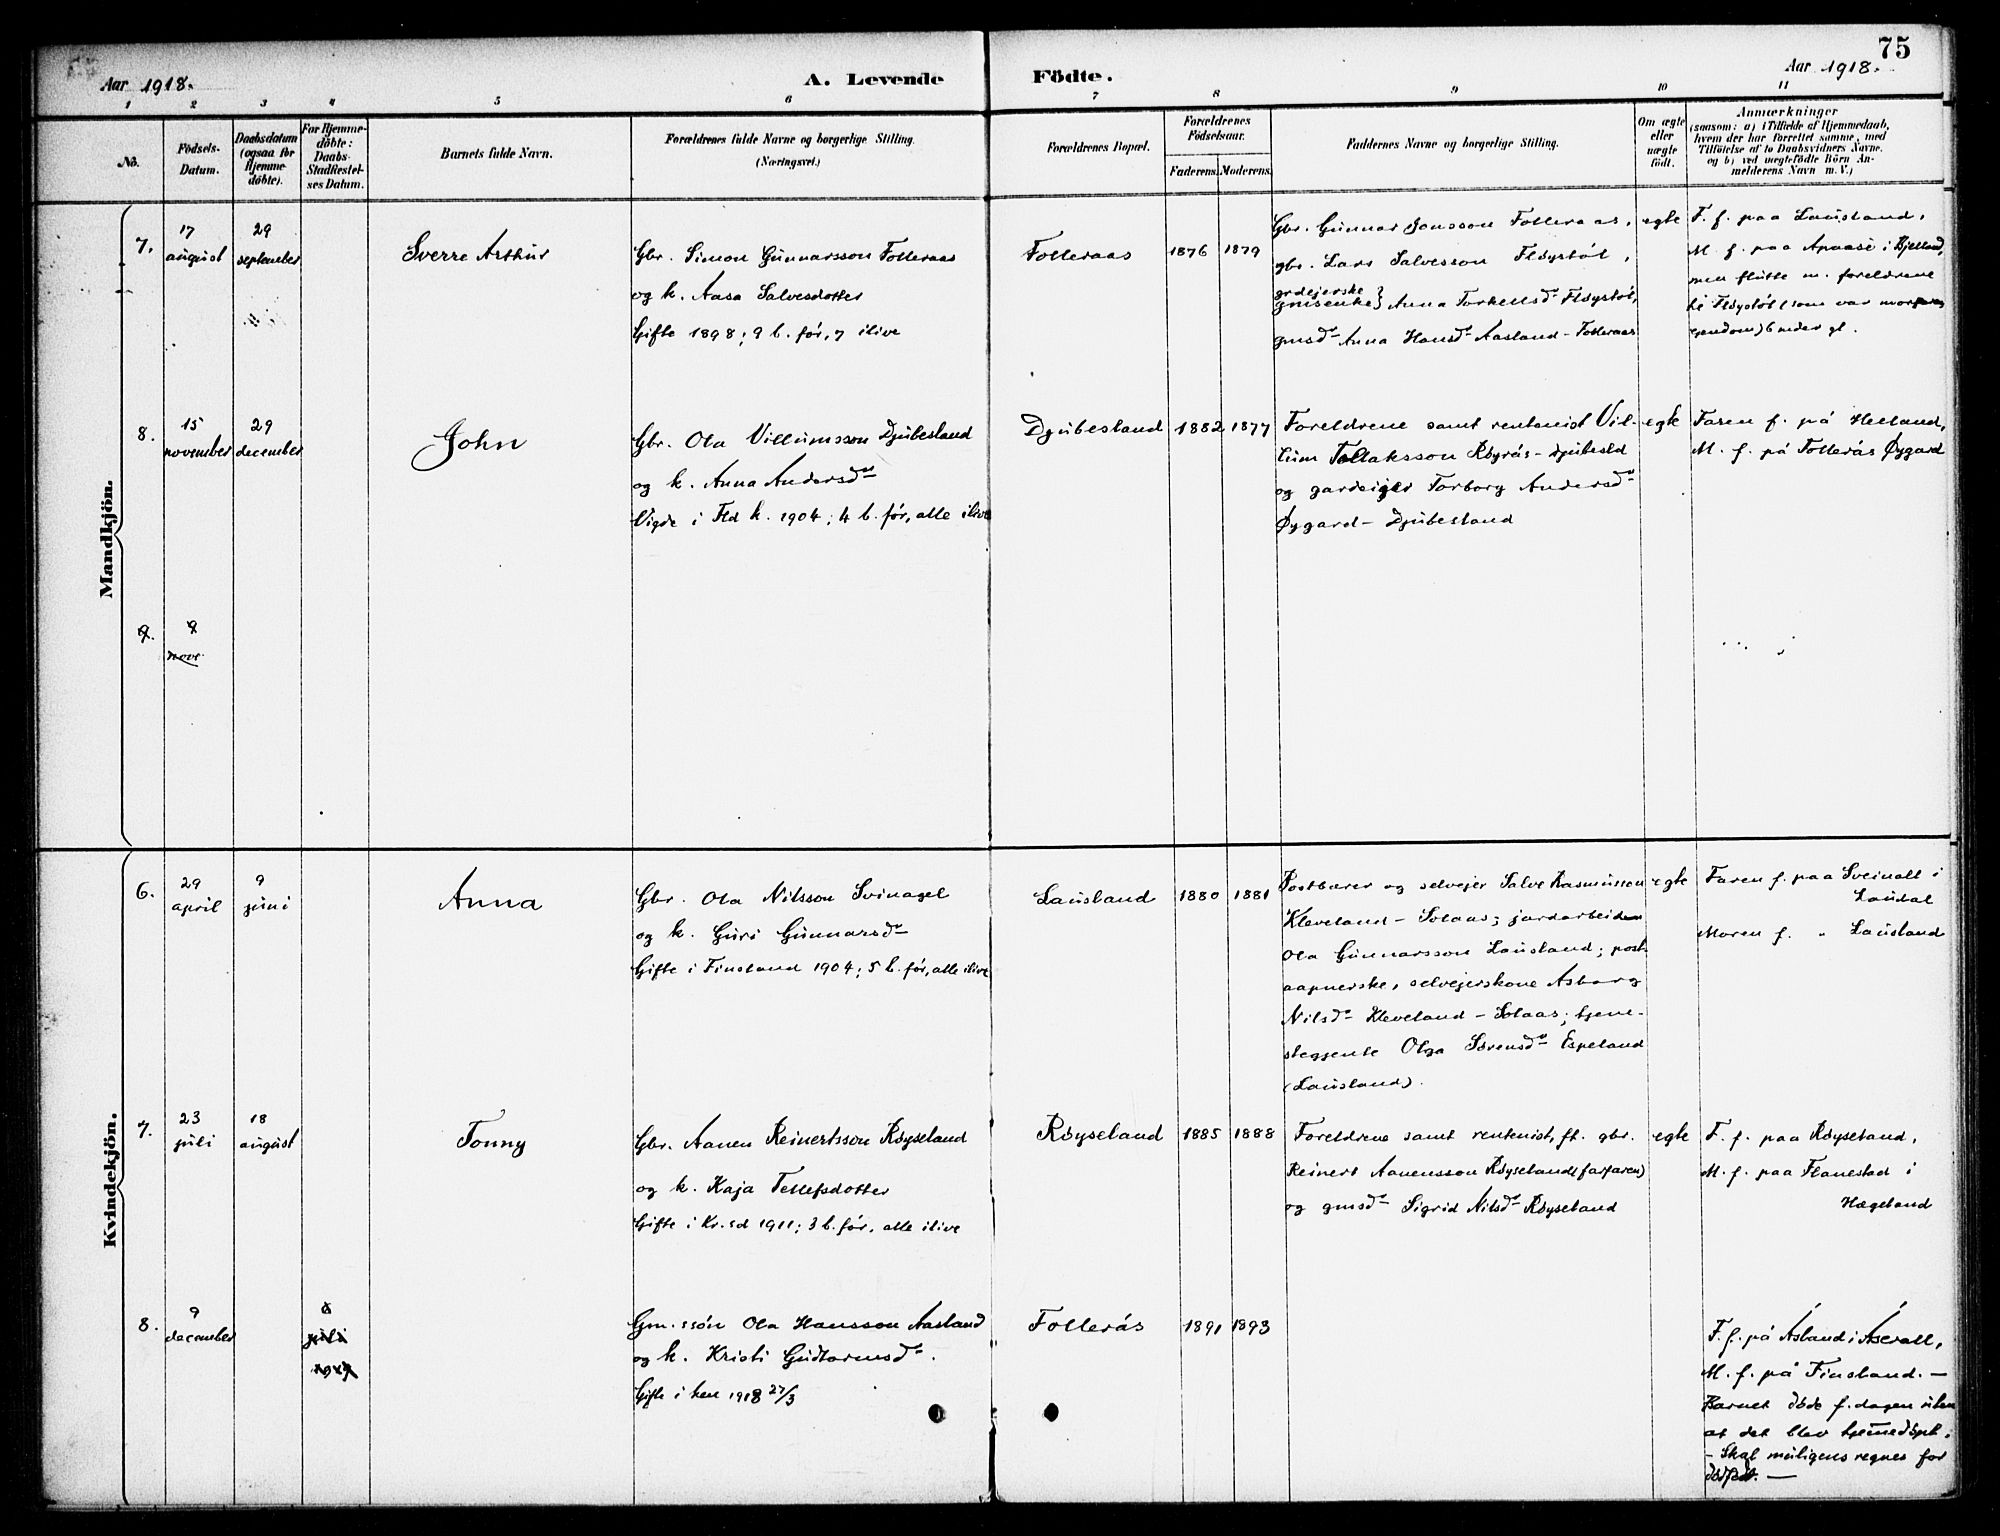 75
Aar 1918.
A. Levende Födte.
Aar 1918.
1 2 3 4 5 6 7 8 9 10 11
No.
Födsels-
Datum.
Daabsdatum
(ogsaa for
Hjemme-
döbte).
For Hjemme-
döbte:
Daabs-
Stadfæstel-
ses Datum.
Barnets fulde Navn.
Forældrenes fulde Navne og borgerlige Stilling.
(Næringsvei.)
Forældrenes Bopæl.
Forældrenes
Födselsaar.
Faderens. Moderens.
Faddernes Navne og borgerlige Stilling.
Om ægte
eller
uægte
födt.
Anmærkninger
(saasom: a) i Tilfælde af Hjemmedaab,
hvem der har forrettet samme, med
Tilföielse af to Daabsvidners Navne.
og b) ved uægtefödte Börn An-
melderens Navn m. V.)
Mandkjön.
7.
17
august
29
september
Sverre Arthur
Gbr. Simon Gunnarsson Folleraas
og k. Aasa Salvesdotter
Gifte 1898; 9 b. før, 7 ilive
Folleraas
1876
1879
Gbr. Gunnar Jonsson Folleraas,
gbr. Lars Salvesson Fløystøl,
grdejerske
gmsenke} Anna Torkellsd Fløystøl,
gmsd Anna Hansd Aasland-Folleraas
egte
F. f. paa Lausland,
M f. paa Apaase i Bjelland,
men flutte m. foreldrene
ti Fløystøl (som var morfarens
ejendom) 6 mdr gl.
8.
15
november
29
december
John
Gbr. Ola Villumsson Djubesland
og k. Anna Andersd
Vigde i Fld k. 1904; 4 b. før, alle ilive
Djubesland
1882
1877
Foreldrene samt rentenist Vil-
lum Tollaksson Røyrås-Djubesld
og gardeiger Torborg Andersd
Øygard- Djubesland
egte
Faren f. på Heiland,
M. f. på Follerås Øygard
9.
9
nove
Kvindekjön.
6.
29
april
9
juni
Anna
Gbr. Ola Nilsson Svinagel
og k. Guri Gunnarsd
Gifte i Finsland 1904; 5 b. før, alle ilive
Lausland
1880
1881
Postbærer og selvejer Salve Rasmusson
Kleveland- Solaas; jordarbeider
Ola Gunnarsson Lausland; post-
aapnerske, selvejerskone Asborg
Nilsd Kleveland- Solaas; tjene-
stegjente Olga Sørensd Espeland
(Lausland).
egte
Faren f. paa Sveinall i
Laudal
Moren f. " Lausland
7.
23
juli
18
august
Tonny
Gbr. Aanen Reinertsson Røyseland
og k. Kaja Tellefsdotter
Gifte i Kr.sd 1911; 3 b. før, alle ilive
Røyseland
1885
1888
Foreldrene samt rentenist, ft. gbr.
Reinert Aanensson Røyseland (farfaren)
og gmsd Sigrid Nilsd Røyseland
egte
F. f. paa Røyseland,
M. f. paa Flanestad i
Hægeland
8.
9
december
6
juli
Gm.ssón Ola Hansson Aasland
og k. Kristi Gudtormsd.
Gifte i her 1918 27/3
Follerås
1891
1893
F. f. på Åsland i Åserall,
M. f. på Finsland. —
Barnet døde f. dagen uten
at det blev hjemedøpt.
- Skal muligens regnes for